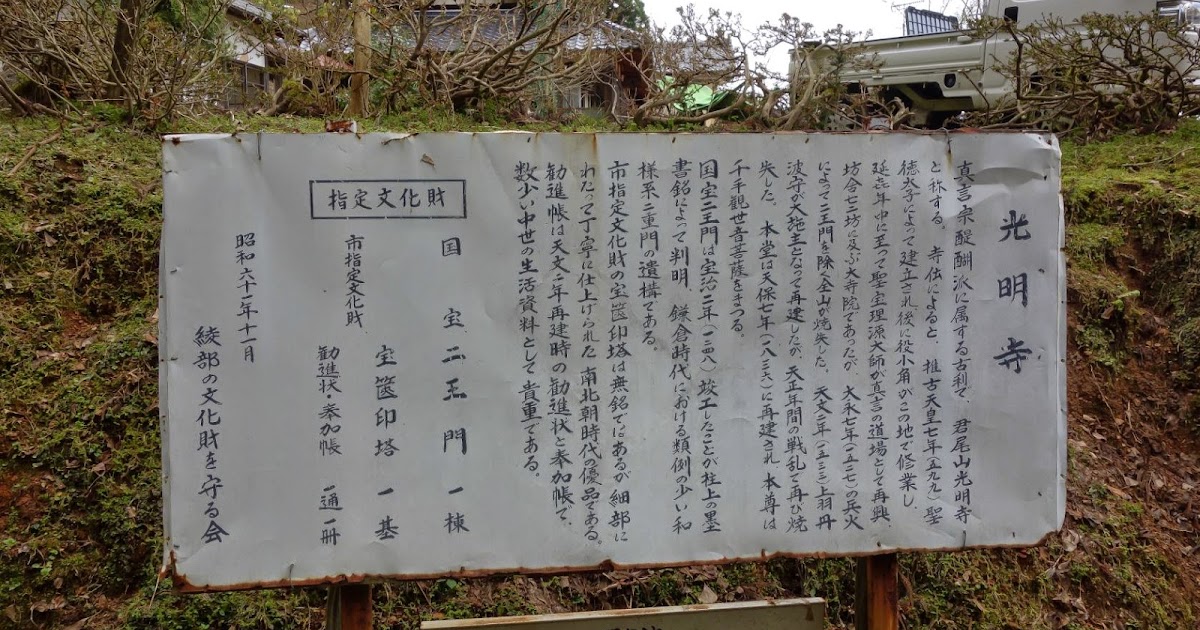 光明寺
真言宗醍醐派に属する古刹で、君尾山光明寺
と称する。寺伝によると、推古天皇七年(五九九)聖
徳太子によって建立され、後に役小角がこの地で修業し、
延㐂年中に至って聖宝理源大師が真言の道場として再興、
坊舎七二坊に及ぶ大寺院であったが、大永七年(一五二七)の兵火
によって二王門を除く全山が焼失した。天文二年(一五三三)上羽丹
波守が大施主となって再建したが、天正年間の戦乱で再び焼
失した。本堂は天保七年(一八三六)に再建され、本尊は
千手観世音菩薩をまつる。
国宝二王門は宝治二年(一二四八)竣工したことが柱上の墨
書銘によって判明、鎌倉時代における類例の少い和
様系二重門の遺構である。
市指定文化財の宝篋印塔は無銘ではあるが、細部に
わたって丁寧に仕上げられた南北朝時代の優品である。
勧進帳は天文二年再建時の勧進状と奉加帳で、
数少い中世の生活資料として貴重である。
指定文化財
国宝二王門 一棟
市指定文化財 宝篋印塔 一基
勧進状・奉加帳 一通一冊
昭和六十一年十一月
綾部の文化財を守る会